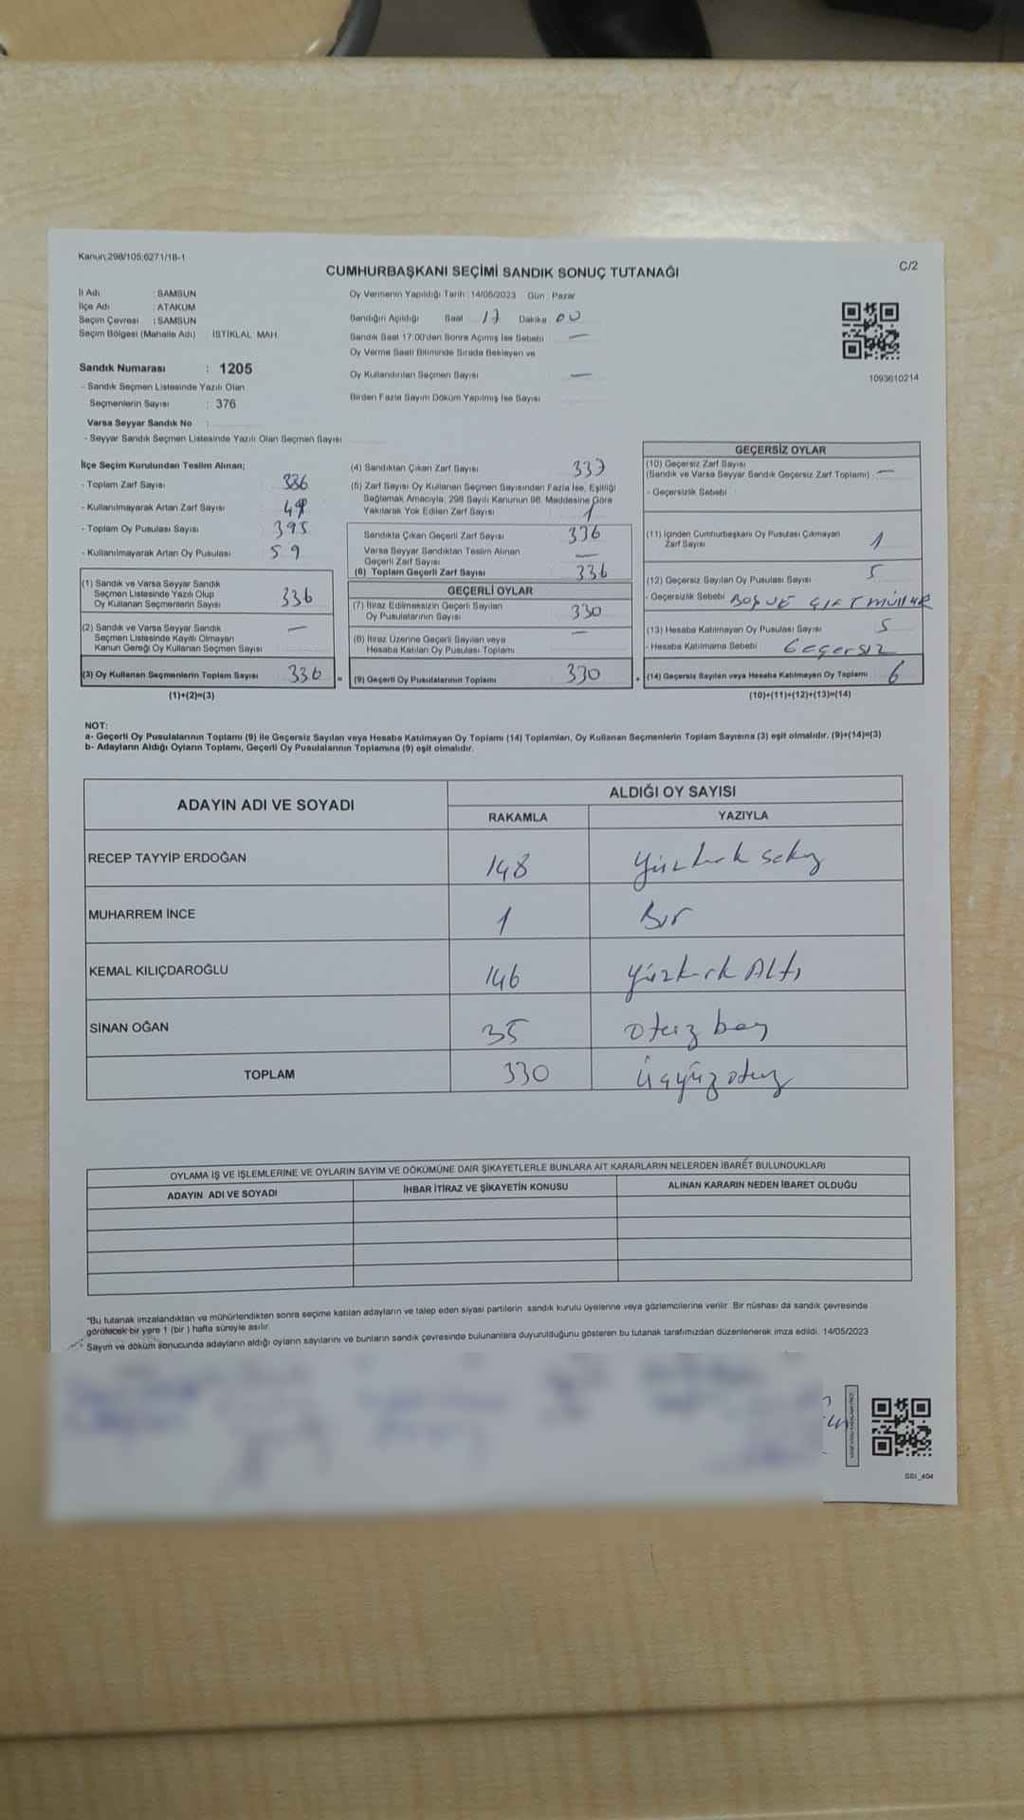 Kanun:298/105;6271/18-1
C/2
CUMHURBAŞKANI SEÇİMİ SANDIK SONUÇ TUTANAĞI
İl Adı : SAMSUN
İlçe Adı : ATAKUM
Seçim Çevresi : SAMSUN
Seçim Bölgesi (Mahalle Adı) İSTİKLAL MAH.
Sandık Numarası : 1205
- Sandık Seçmen Listesinde Yazılı Olan
Seçmenlerin Sayısı : 376
Varsa Seyyar Sandık No
- Seyyar Sandık Seçmen Listesinde Yazılı Olan Seçmen Sayısı
Oy Vermenin Yapıldığı Tarih : 14/05/2023 Gün : Pazar
Sandığın Açıldığı Saat 17 Dakika 00
Sandık Saat 17:00'den Sonra Açılmış İse Sebebi —
Oy Verme Saati Bitiminde Sırada Bekleyen ve
Oy Kullandırılan Seçmen Sayısı —
Birden Fazla Sayım Döküm Yapılmış İse Sayısı
1093610214
İlçe Seçim Kurulundan Teslim Alınan;
- Toplam Zarf Sayısı
- Kullanılmayarak Artan Zarf Sayısı
- Toplam Oy Pusulası Sayısı 395
- Kullanılmayarak Artan Oy Pusulası 59
(1) Sandık ve Varsa Seyyar Sandık
Seçmen Listesinde Yazılı Olup
Oy Kullanan Seçmenlerin Sayısı 336
(2) Sandık ve Varsa Seyyar Sandık
Seçmen Listesinde Kayıtlı Olmayan
Kanun Gereği Oy Kullanan Seçmen Sayısı —
(3) Oy Kullanan Seçmenlerin Toplam Sayısı 336
(1)+(2)=(3)
(4) Sandıktan Çıkan Zarf Sayısı 337
(5) Zarf Sayısı Oy Kullanan Seçmen Sayısından Fazla İse, Eşitliği
Sağlamak Amacıyla; 298 Sayılı Kanunun 98. Maddesine Göre
Yakılarak Yok Edilen Zarf Sayısı 1
Sandıkta Çıkan Geçerli Zarf Sayısı 336
Varsa Seyyar Sandıktan Teslim Alınan
Geçerli Zarf Sayısı —
(6) Toplam Geçerli Zarf Sayısı 336
GEÇERLİ OYLAR
(7) İtiraz Edilmeksizin Geçerli Sayılan
Oy Pusulalarının Sayısı 330
(8) İtiraz Üzerine Geçerli Sayılan veya
Hesaba Katılan Oy Pusulası Toplamı —
(9) Geçerli Oy Pusulalarının Toplamı 330
GEÇERSİZ OYLAR
(10) Geçersiz Zarf Sayısı
(Sandık ve Varsa Seyyar Sandık Geçersiz Zarf Toplamı) —
- Geçersizlik Sebebi
(11) İçinden Cumhurbaşkanı Oy Pusulası Çıkmayan
Zarf Sayısı 1
(12) Geçersiz Sayılan Oy Pusulası Sayısı 5
- Geçersizlik Sebebi BOŞ VE ÇİFT MÜHÜR
(13) Hesaba Katılmayan Oy Pusulası Sayısı 5
- Hesaba Katılmama Sebebi Geçersiz
(14) Geçersiz Sayılan veya Hesaba Katılmayan Oy Toplamı 6
(10)+(11)+(12)+(13)=(14)
NOT:
a- Geçerli Oy Pusulalarının Toplamı (9) ile Geçersiz Sayılan veya Hesaba Katılmayan Oy Toplamı (14) Toplamları, Oy Kullanan Seçmenlerin Toplam Sayısına (3) eşit olmalıdır. (9)+(14)=(3)
b- Adayların Aldığı Oyların Toplamı, Geçerli Oy Pusulalarının Toplamına (9) eşit olmalıdır.
ADAYIN ADI VE SOYADI
ALDIĞI OY SAYISI
RAKAMLA YAZIYLA
RECEP TAYYİP ERDOĞAN 148 Yüzkırk sekiz
MUHARREM İNCE 1 Bir
KEMAL KILIÇDAROĞLU 146 Yüzkırk Altı
SİNAN OĞAN 35 otuz beş
TOPLAM 330 Üçyüz otuz
OYLAMA İŞ VE İŞLEMLERİNE VE OYLARIN SAYIM VE DÖKÜMÜNE DAİR ŞİKAYETLERLE BUNLARA AİT KARARLARIN NELERDEN İBARET BULUNDUKLARI
ADAYIN ADI VE SOYADI İHBAR İTİRAZ VE ŞİKAYETİN KONUSU ALINAN KARARIN NEDEN İBARET OLDUĞU
"Bu tutanak imzalandıktan ve mühürlendikten sonra seçime katılan adayların ve talep eden siyasi partilerin sandık kurulu üyelerine veya gözlemcilerine verilir. Bir nüshası da sandık çevresinde
görülecek bir yere 1 (bir) hafta süreyle asılır.
Sayım ve döküm sonucunda adayların aldığı oyların sayılarını ve bunların sandık çevresinde bulunanlara duyurulduğunu gösteren bu tutanak tarafımızdan düzenlenerek imza edildi. 14/05/2023